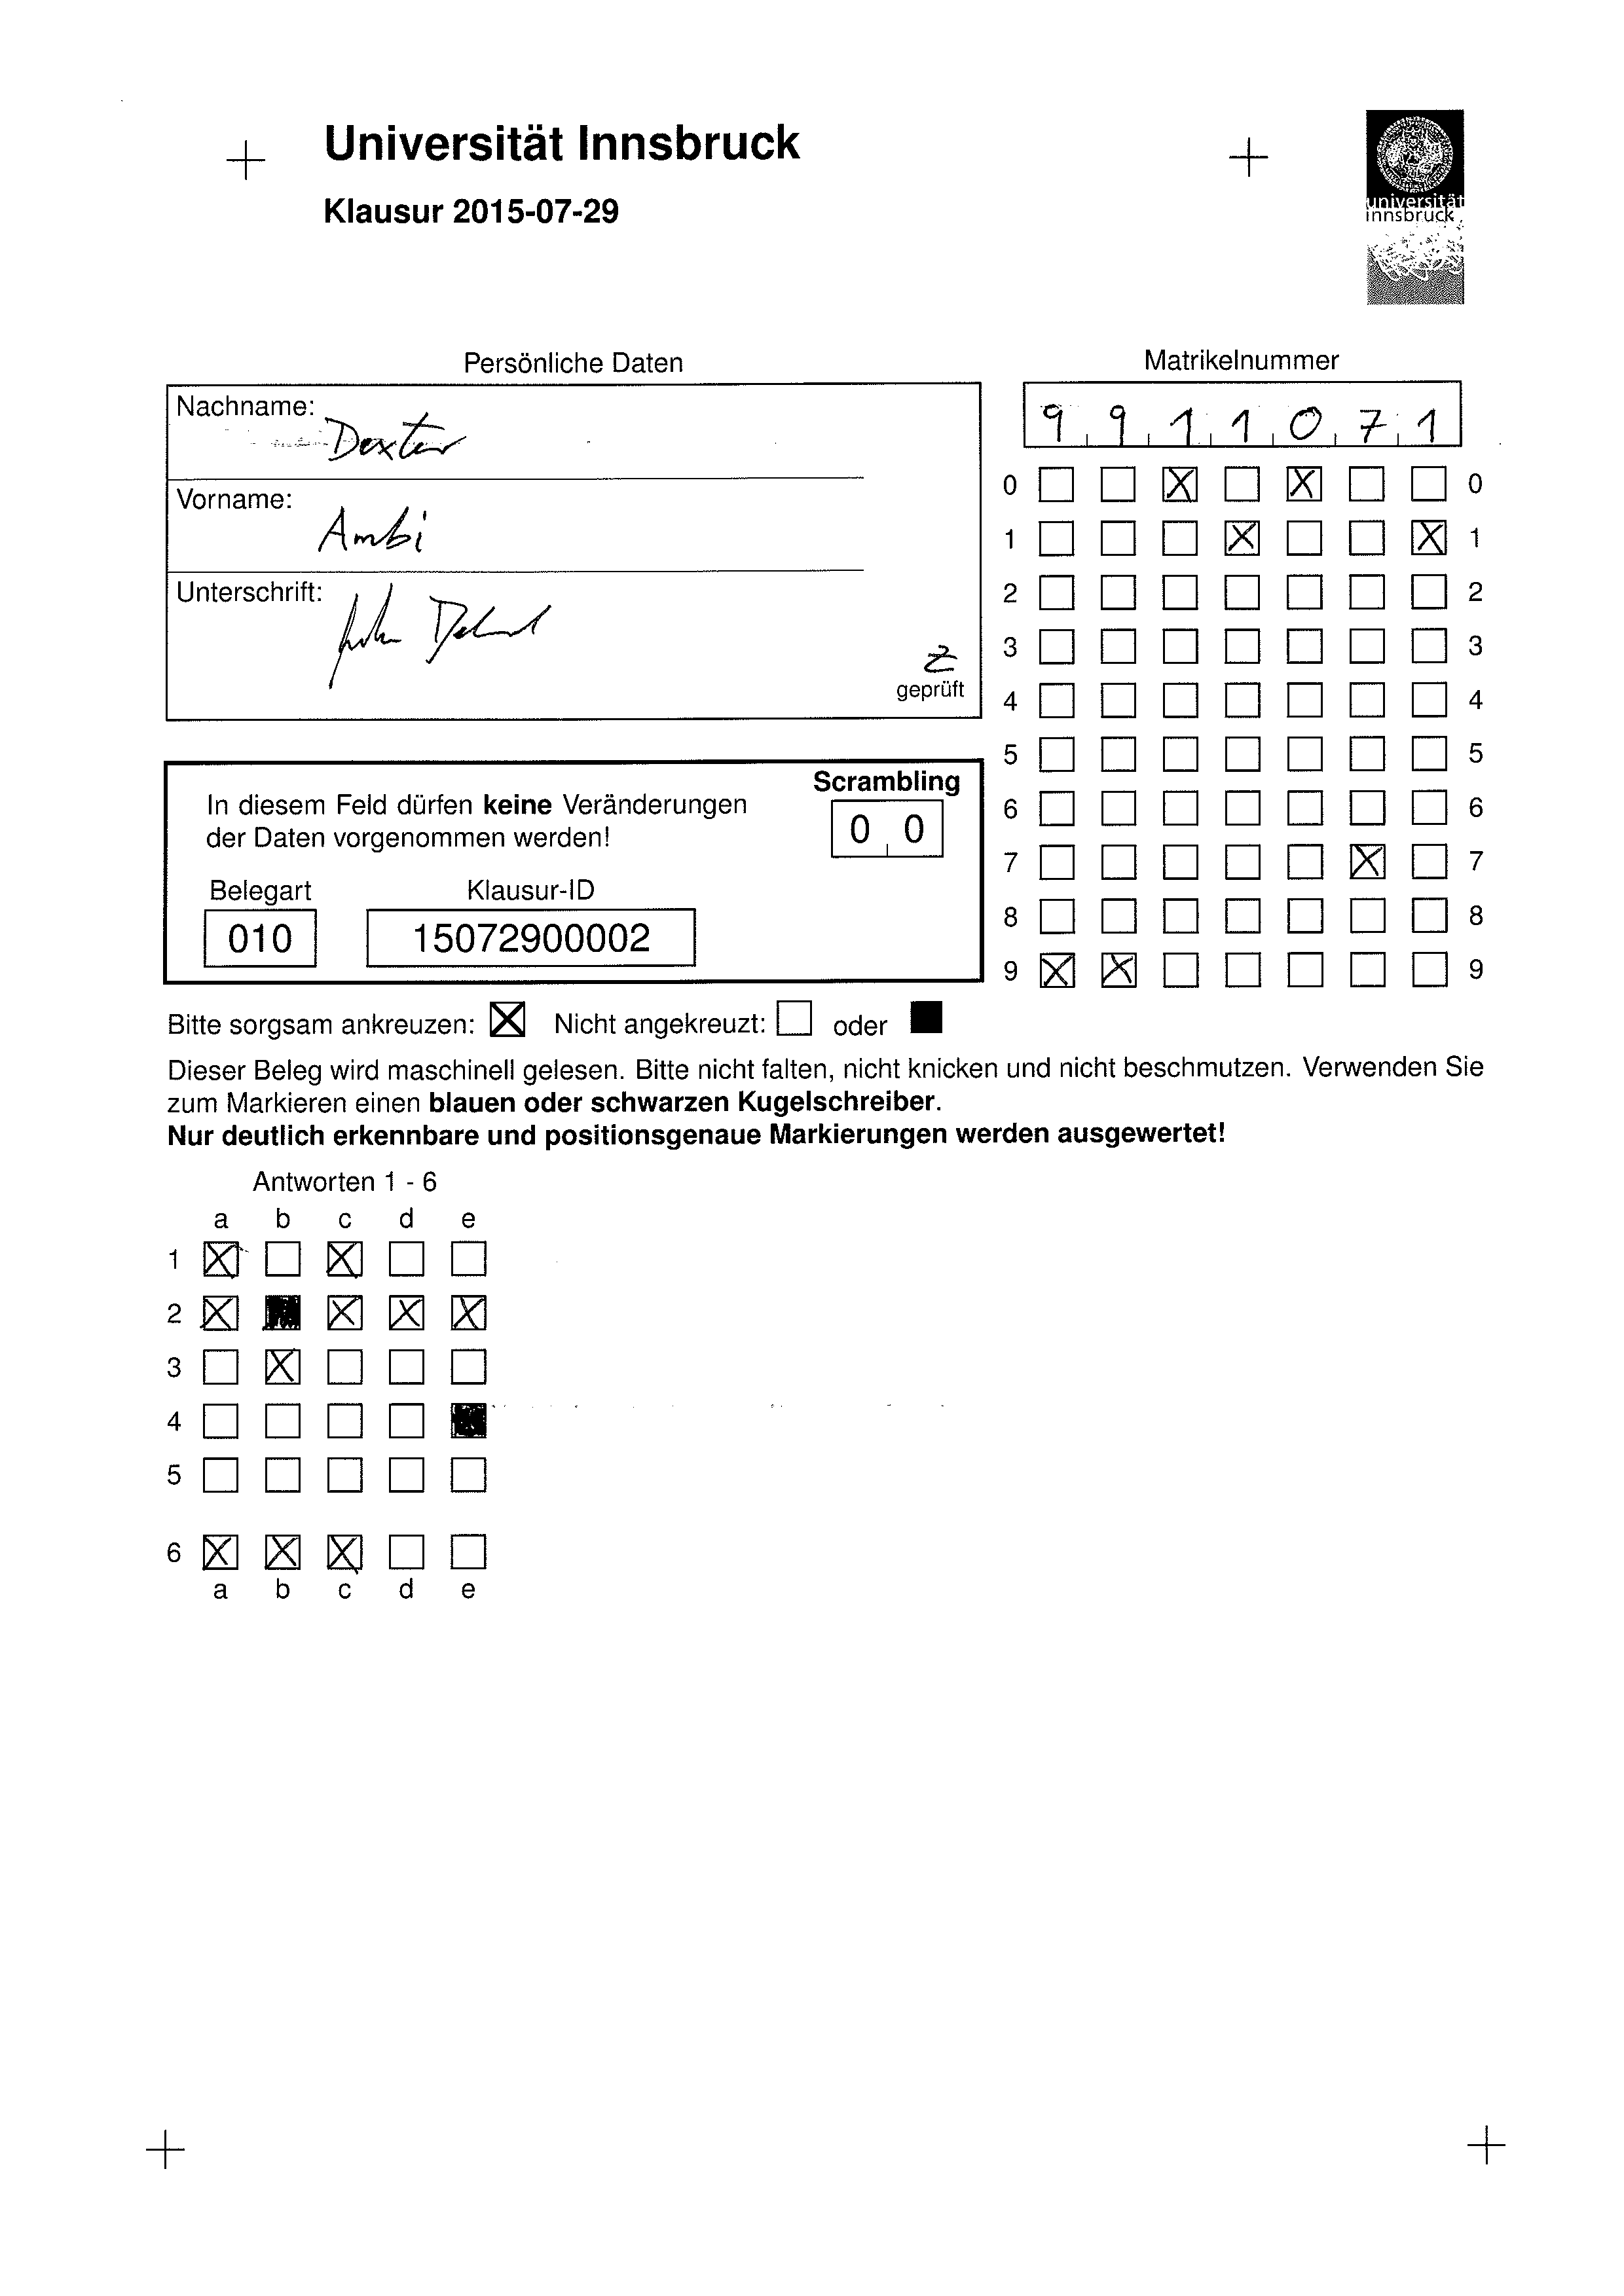 Universität Innsbruck
Klausur 2015-07-29
universität
innsbruck
Persönliche Daten
Matrikelnummer
Nachname: Dexter
Vorname: Ambi
Unterschrift:
geprüft
9 9 1 1 0 7 1
0 0
1 1
2 2
3 3
4 4
5 5
6 6
7 7
8 8
9 9
Scrambling
In diesem Feld dürfen keine Veränderungen
der Daten vorgenommen werden!
0 0
Belegart Klausur-ID
010 15072900002
Bitte sorgsam ankreuzen: Nicht angekreuzt: oder
Dieser Beleg wird maschinell gelesen. Bitte nicht falten, nicht knicken und nicht beschmutzen. Verwenden Sie
zum Markieren einen blauen oder schwarzen Kugelschreiber.
Nur deutlich erkennbare und positionsgenaue Markierungen werden ausgewertet!
Antworten 1 - 6
a b c d e
1
2
3
4
5
6
a b c d e